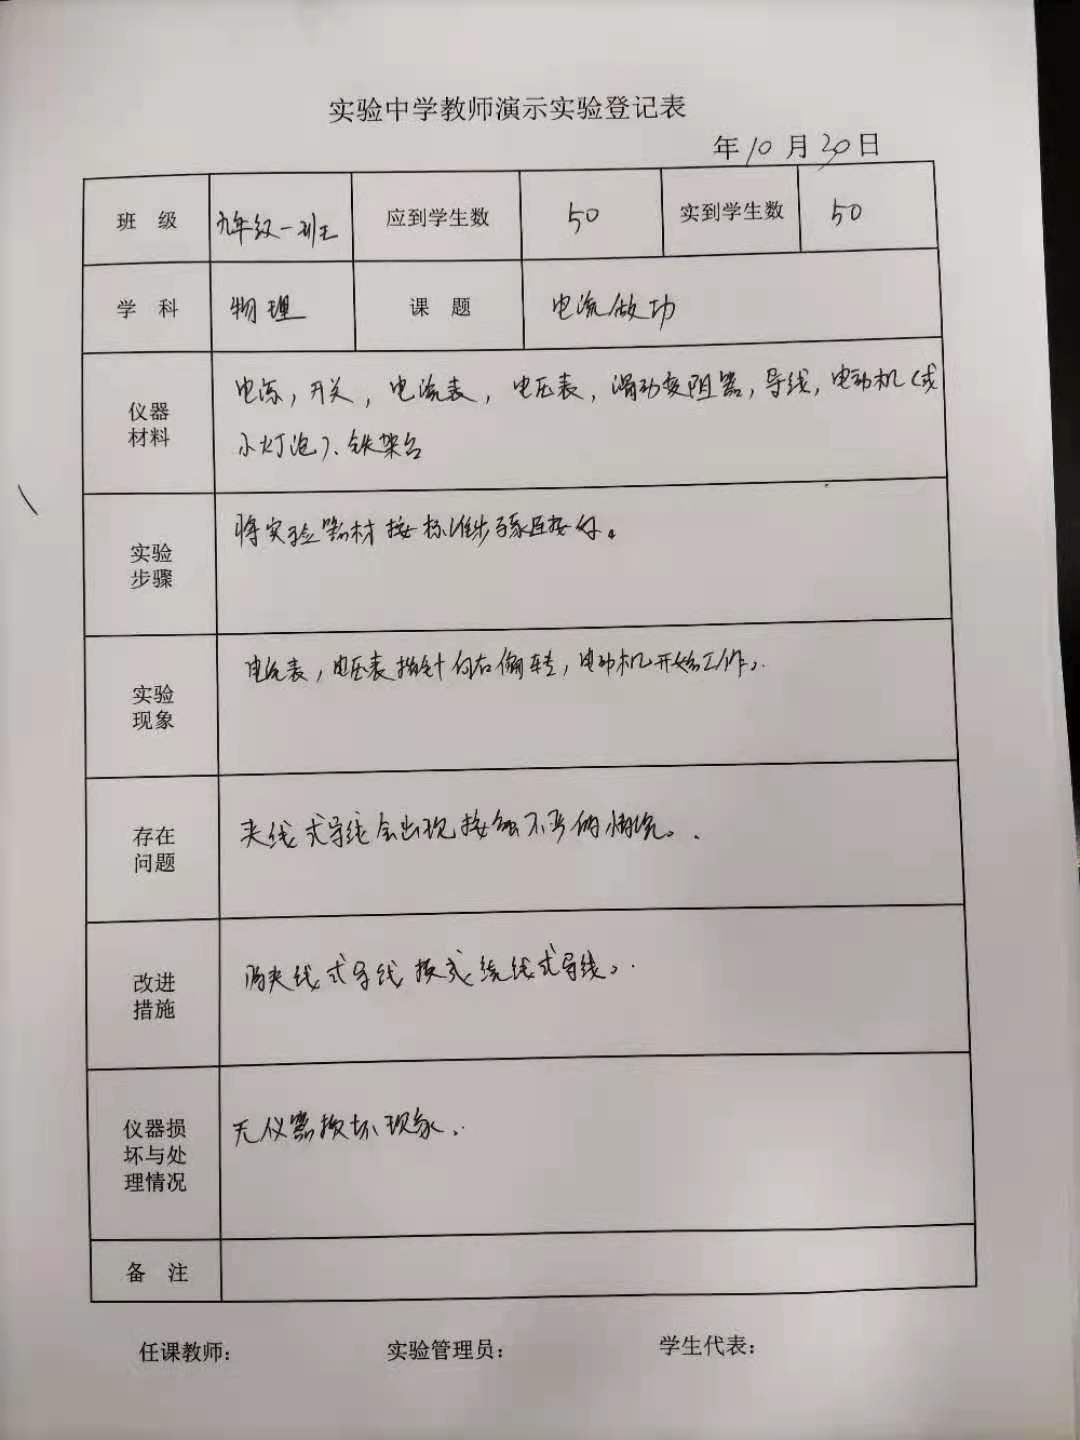 实验中学教师演示实验登记表
年10月30日
班 级 九年级一班 应到学生数 50 实到学生数 50
学 科 物理 课 题 电流做功
仪器
材料
电源，开关，电流表，电压表，滑动变阻器，导线，电动机（或
小灯泡）、铁架台
实验
步骤
将实验器材按标准步骤连接好。
实验
现象
电流表，电压表指针向右偏转，电动机开始工作。
存在
问题
夹线式导线会出现接触不良的情况。
改进
措施
将夹线式导线换成绕线式导线。
仪器损
坏与处
理情况
无仪器损坏现象。
备 注
任课教师： 实验管理员： 学生代表：